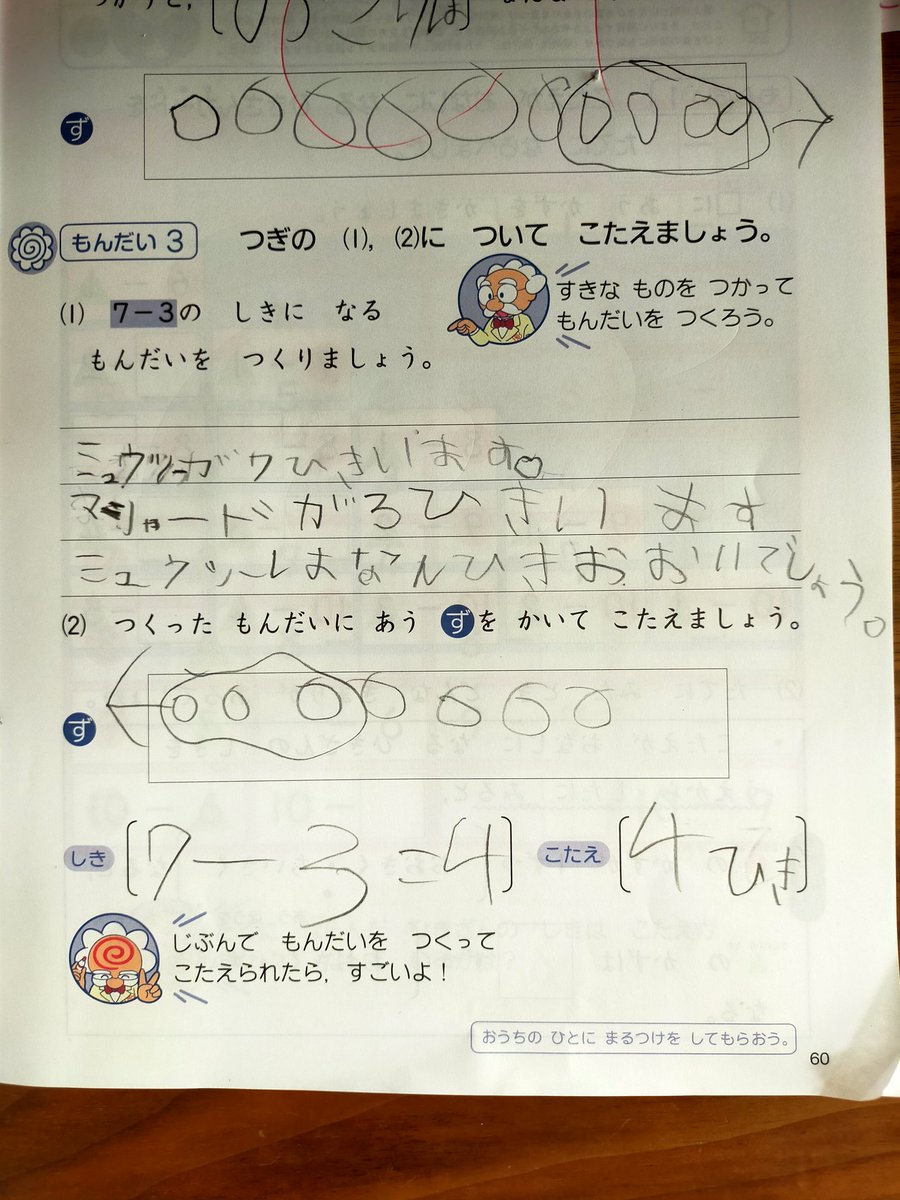 ず
もんだい 3 つぎの (1), (2)に ついて こたえましょう。
すきな ものを つかって
もんだいを つくろう。
(1) 7-3の しきに なる
もんだいを つくりましょう。
ミュウツーガ7ひきいます。
マシャードが3びきいます
ミュウツーはなんひきおおいでしょう。
(2) つくった もんだいに あう ずを かいて こたえましょう。
ず
しき [7-3=4] こたえ [4ひき]
じぶんで もんだいを つくって
こたえられたら, すごいよ!
おうちの ひとに まるつけを してもらおう。
60